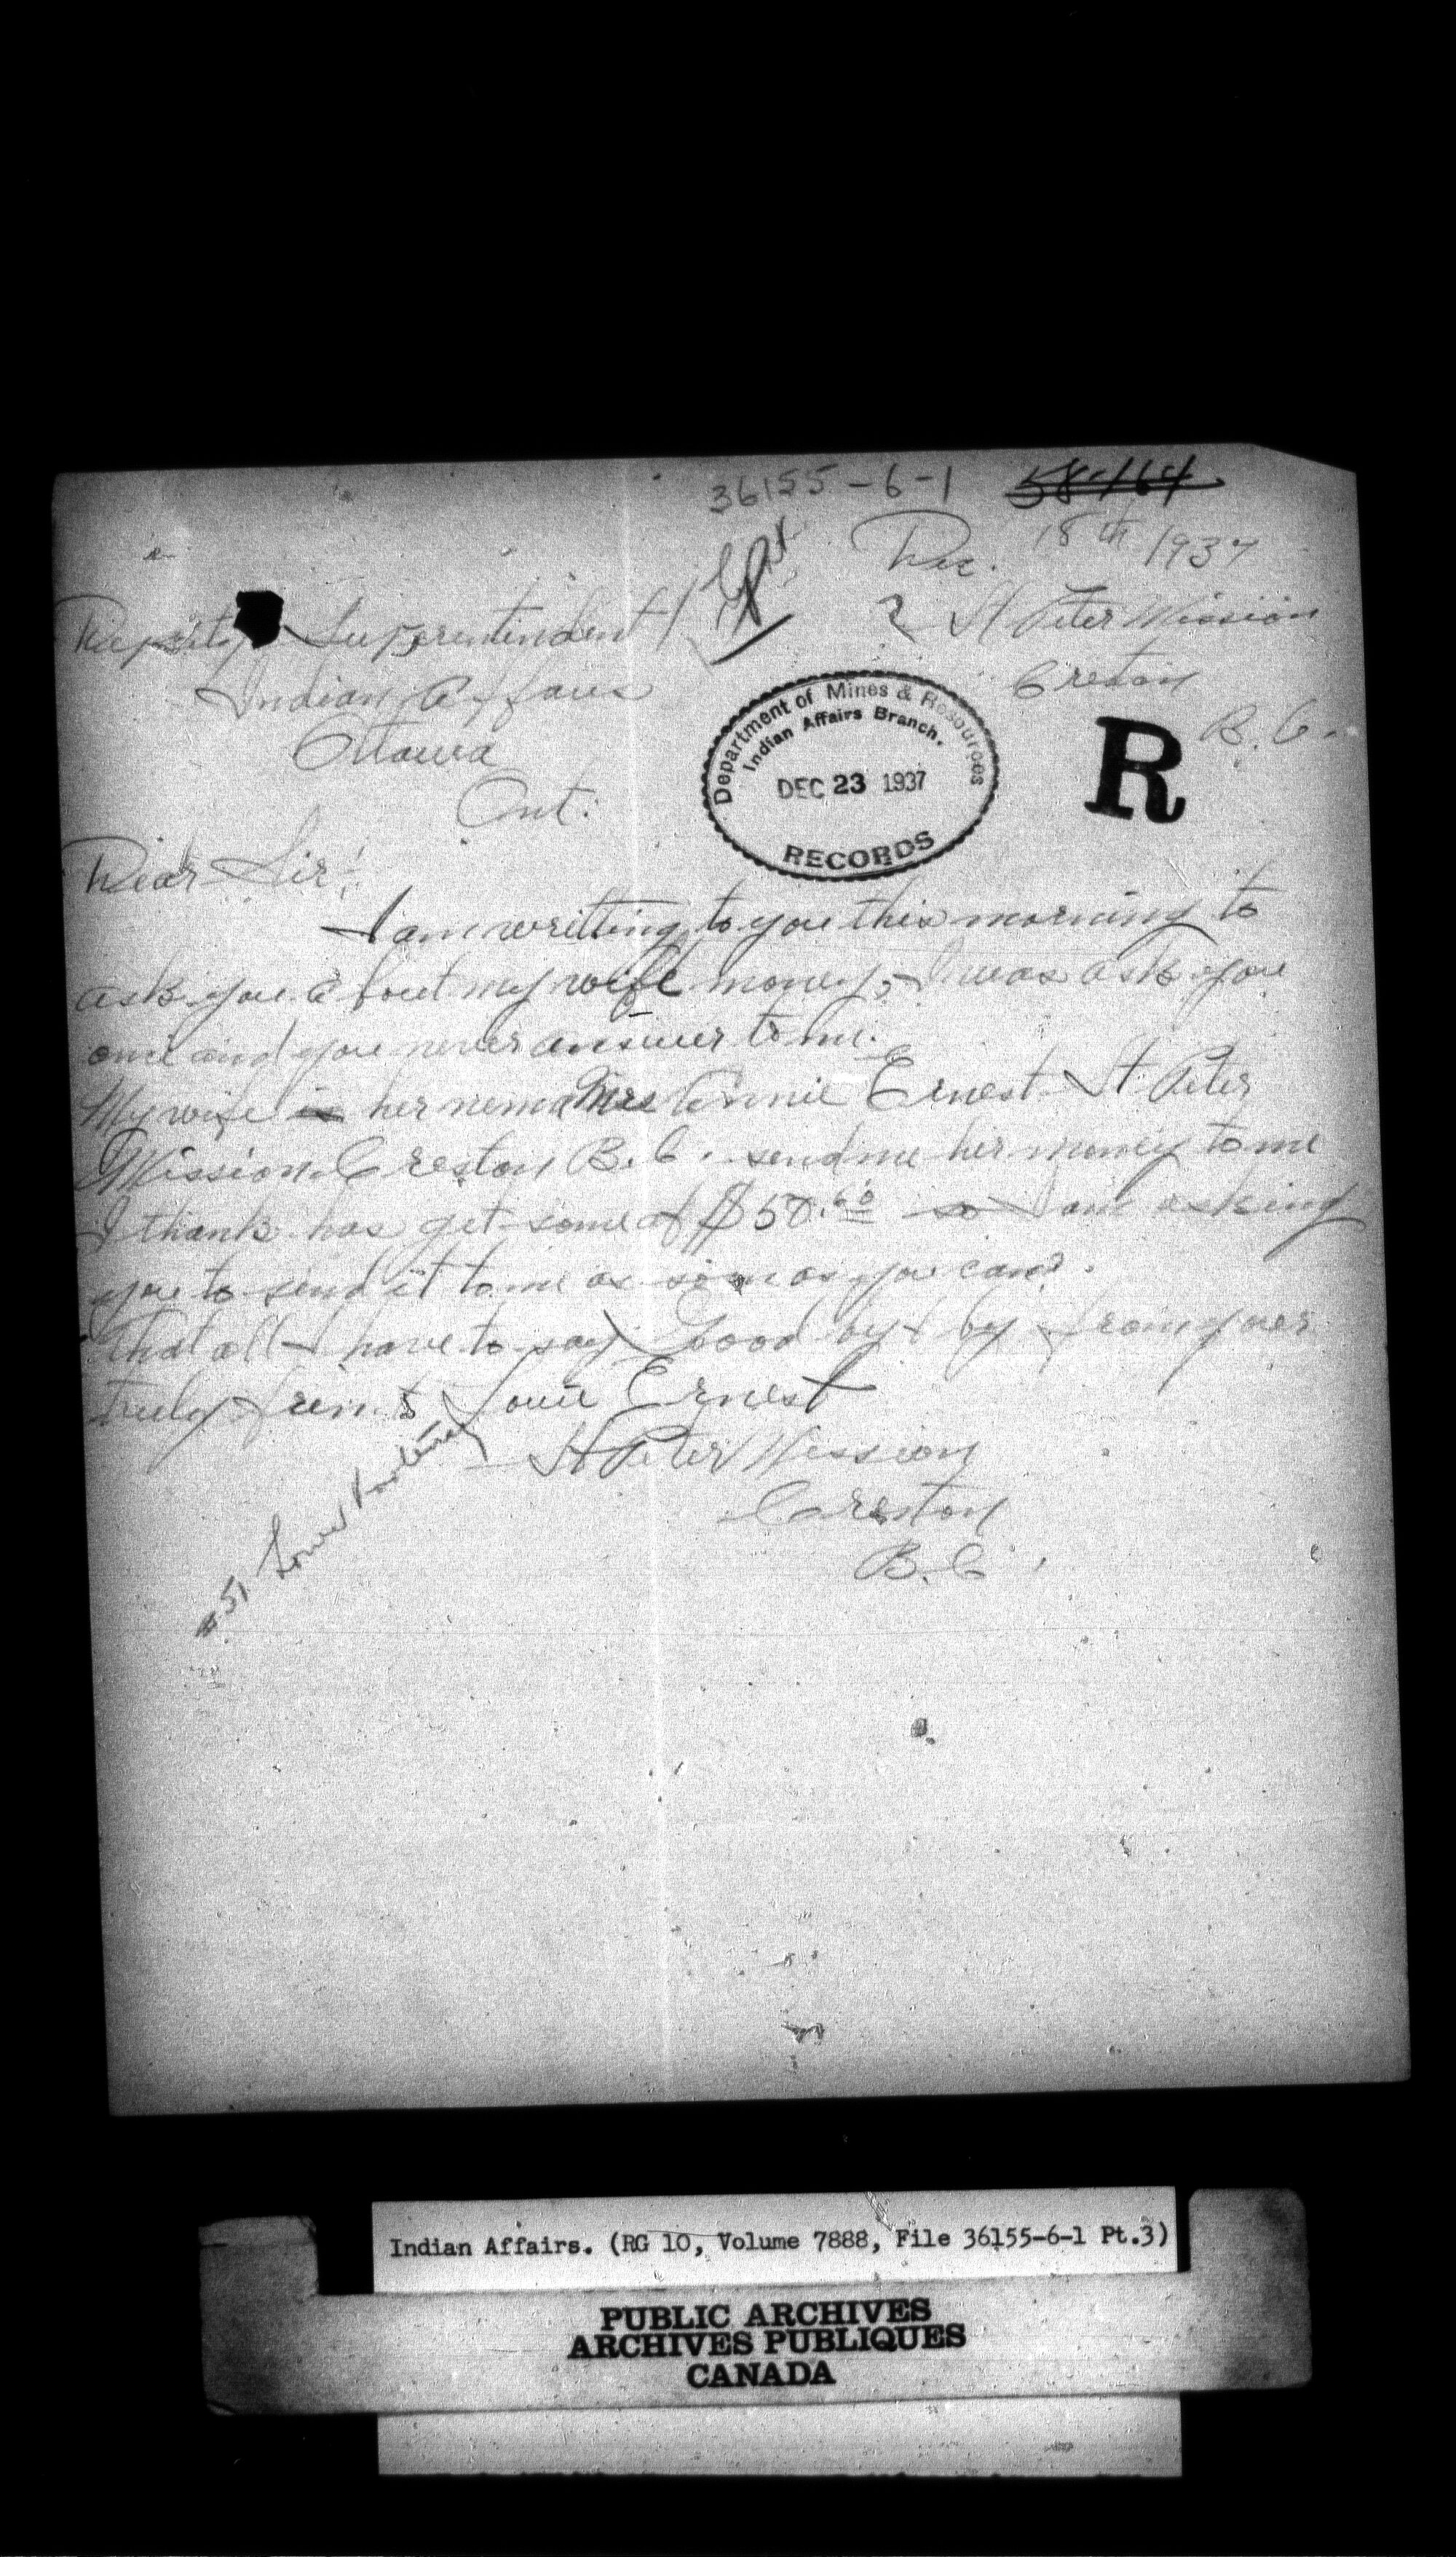 36155-6-1 58464
Dec. 18th 1937
St Peter Mission
Creston
B.C.
Deputy Superentindent
Indian Affairs
Ottawa
Ont.
Department of Mines & Resources
Indian Affairs Branch.
DEC 23 1937
RECORDS
R
Dear Sir!
I am writting to you this morning to
ask you a bout my wife money, I was ask you
once and you never answer to me.
My wife is her nema Mrs Annie Ernest St Peter
Mission Creston B.C. send me her money to me
I thank has get some of $50.00 so I am asking
you to send it to me as soon as you can?
that all I have to say Good by & by from yours
truly frind Louie Ernest
St Peter Mission
Creston
B.C.
#51 Lower Kootenay
Indian Affairs. (RG 10, Volume 7888, File 36155-6-1 Pt.3)
PUBLIC ARCHIVES
ARCHIVES PUBLIQUES
CANADA